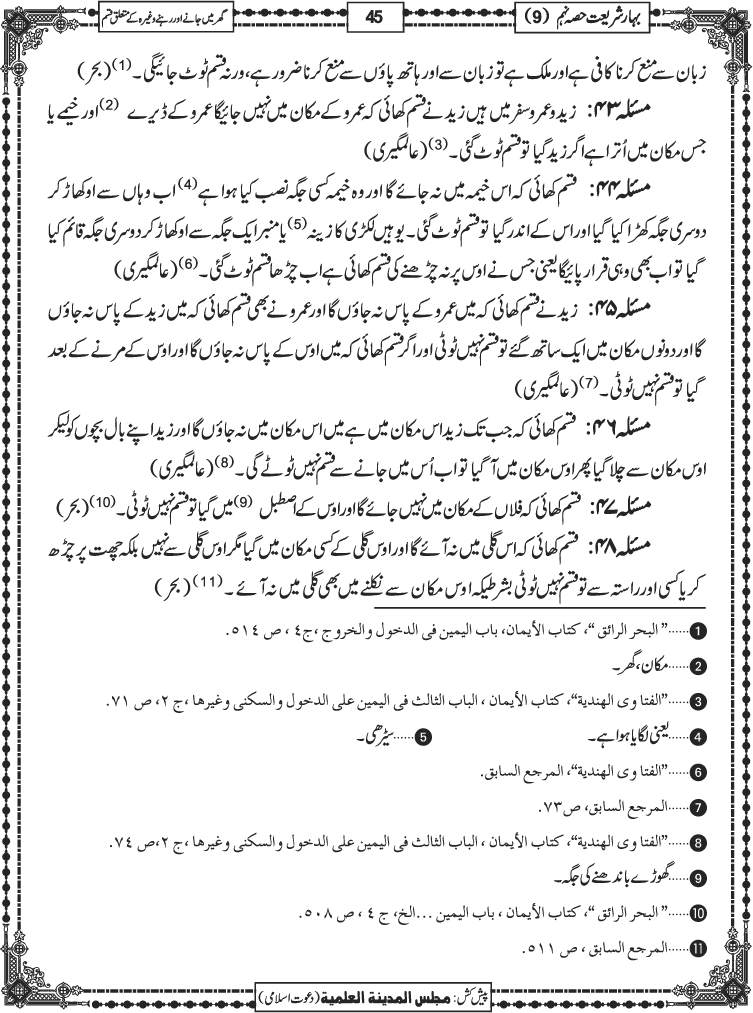 بہارِ شریعت حصہ نہم (9)
45
گھر میں جانے اور رہنے وغیرہ کے متعلق قسم
زبان سے منع کرنا کافی ہے اور ملک ہے تو زبان سے اور ہاتھ پاؤں سے منع کرنا ضرور ہے، ورنہ قسم ٹوٹ جائیگی۔(1) (بحر)
مسئلہ ۴۳: زید و عمرو سفر میں ہیں زید نے قسم کھائی کہ عمرو کے مکان میں نہیں جائیگا عمرو کے ڈیرے (2) اور خیمے یا
جس مکان میں اُترا ہے اگر زید گیا تو قسم ٹوٹ گئی۔(3) (عالمگیری)
مسئلہ ۴۴: قسم کھائی کہ اس خیمہ میں نہ جائے گا اور وہ خیمہ کسی جگہ نصب کیا ہوا ہے (4) اب وہاں سے اوکھاڑ کر
دوسری جگہ کھڑا کیا گیا اور اس کے اندر گیا تو قسم ٹوٹ گئی۔ یوہیں لکڑی کا زینہ (5) یا منبر ایک جگہ سے اوکھاڑ کر دوسری جگہ قائم کیا
گیا تو اب بھی وہی قرار پائیگا یعنی جس نے اوس پر نہ چڑھنے کی قسم کھائی ہے اب چڑھا قسم ٹوٹ گئی۔(6) (عالمگیری)
مسئلہ ۴۵: زید نے قسم کھائی کہ میں عمرو کے پاس نہ جاؤں گا اور عمرو نے بھی قسم کھائی کہ میں زید کے پاس نہ جاؤں
گا اور دونوں مکان میں ایک ساتھ گئے تو قسم نہیں ٹوٹی اور اگر قسم کھائی کہ میں اوس کے پاس نہ جاؤں گا اور اوس کے مرنے کے بعد
گیا تو قسم نہیں ٹوٹی۔(7) (عالمگیری)
مسئلہ ۴۶: قسم کھائی کہ جب تک زید اس مکان میں ہے میں اس مکان میں نہ جاؤں گا اور زید اپنے بال بچوں کو لیکر
اوس مکان سے چلا گیا پھر اوس مکان میں آ گیا تو اب اُس میں جانے سے قسم نہیں ٹوٹے گی۔(8) (عالمگیری)
مسئلہ ۴۷: قسم کھائی کہ فلاں کے مکان میں نہیں جائے گا اور اوس کے اصطبل (9) میں گیا تو قسم نہیں ٹوٹی۔(10) (بحر)
مسئلہ ۴۸: قسم کھائی کہ اس گلی میں نہ آئے گا اور اوس گلی کے کسی مکان میں گیا مگر اوس گلی سے نہیں بلکہ چھت پر چڑھ
کر یا کسی اور راستہ سے تو قسم نہیں ٹوٹی بشرطیکہ اوس مکان سے نکلنے میں بھی گلی میں نہ آئے۔(11) (بحر)
1......”البحر الرائق“، کتاب الأیمان، باب الیمین فی الدخول والخروج، ج٤، ص ٥١٤.
2......مکان، گھر۔
3......”الفتاوی الهندیة“، کتاب الأیمان، الباب الثالث فی الیمین علی الدخول والسکنی وغیرها، ج ٢، ص ٧١.
4......یعنی لگایا ہوا ہے۔ 5......سیڑھی۔
6......”الفتاوی الهندیة“، المرجع السابق.
7......المرجع السابق، ص٧٣.
8......”الفتاوی الهندیة“، کتاب الأیمان، الباب الثالث فی الیمین علی الدخول والسکنی وغیرها، ج ٢، ص ٧٤.
9......گھوڑے باندھنے کی جگہ۔
10......”البحر الرائق“، کتاب الأیمان، باب الیمین ...الخ، ج ٤، ص ٥٠٨.
11......المرجع السابق، ص ٥١١.
پیش کش: مجلس المدینة العلمیة (دعوتِ اسلامی)